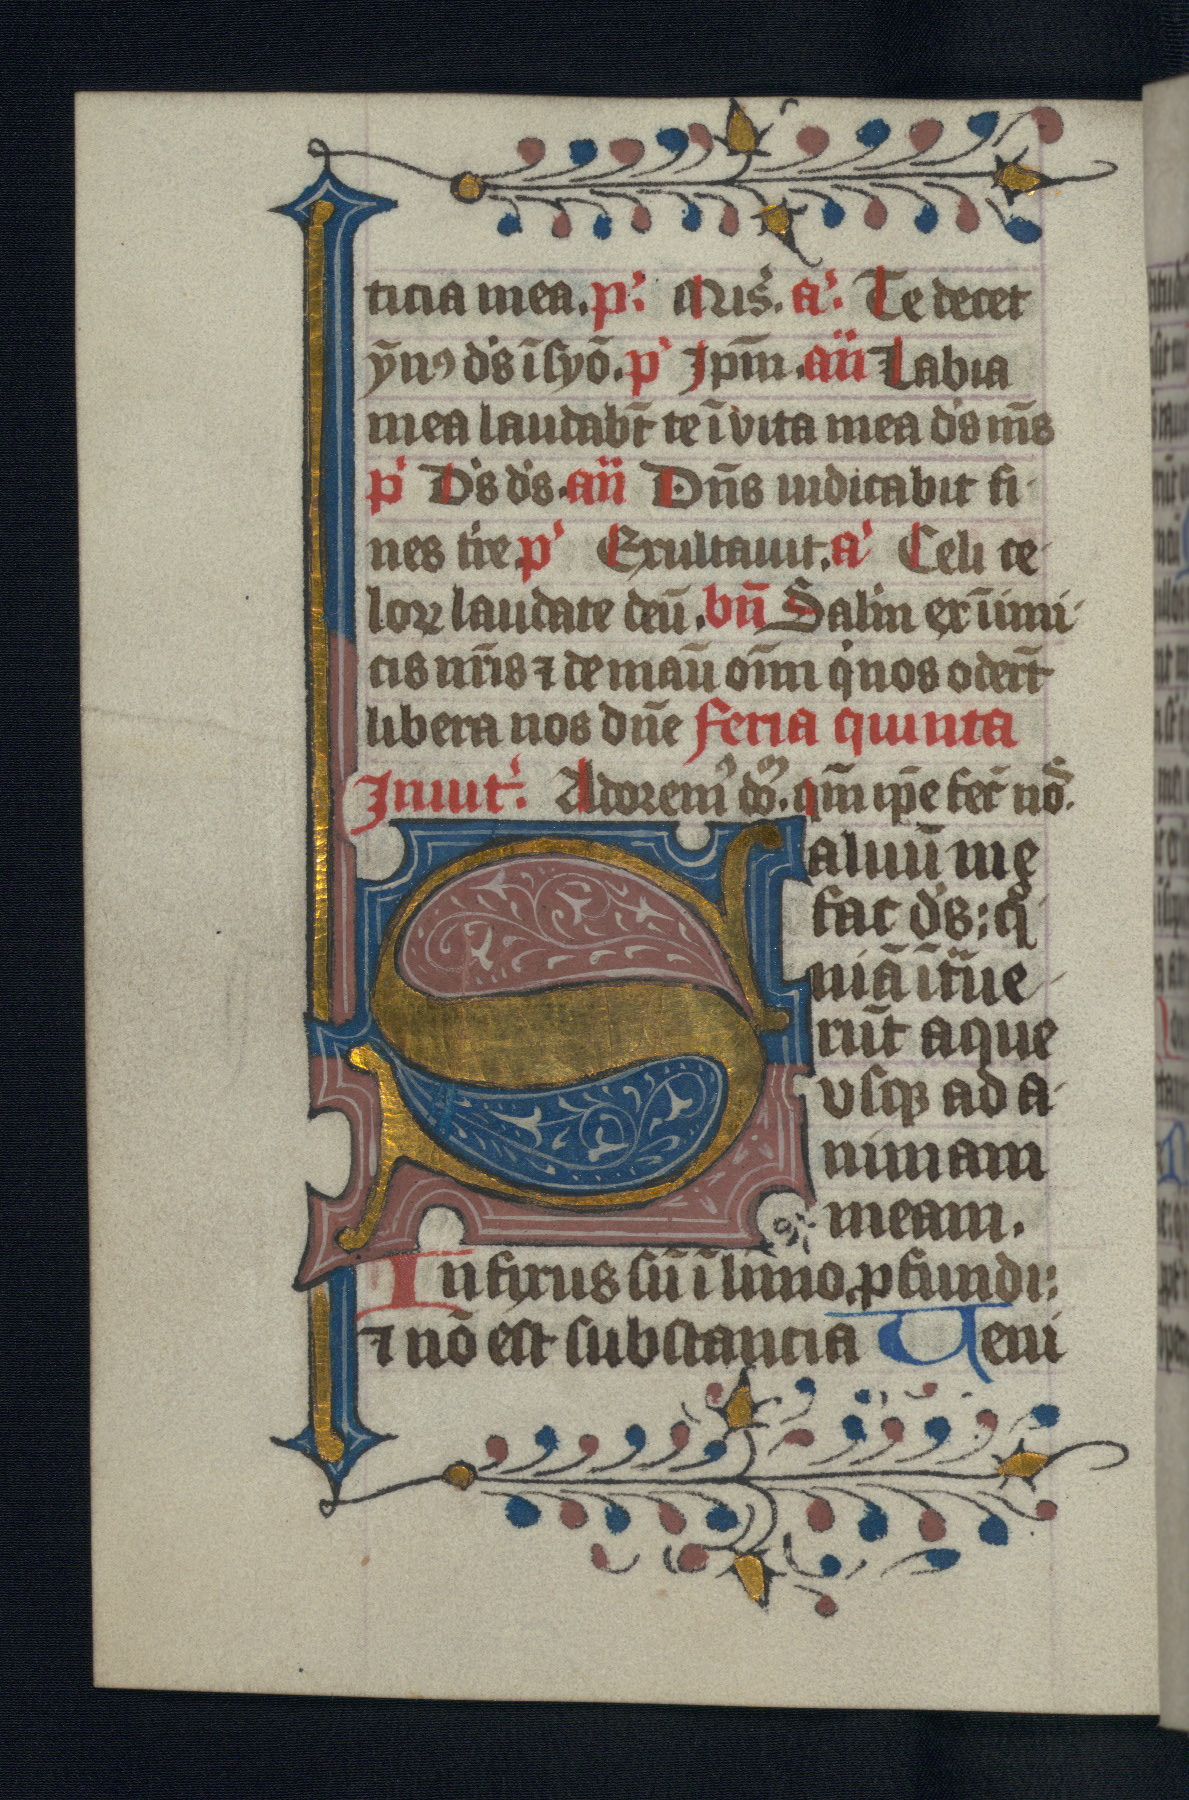 ticia mea. p᷒: Mis̾. a᷒: Te decet
ȳnꝰ d̾s ī syō. p᷒ Ip̄m. an̄ Labia
mea laudab̄t te ī vita mea d̾s m̄s
p᷒ D̾s d̾s. an̄ Dn̄s iudicabit fi
nes tr̾e p᷒ Exultauit. a᷒ Celi ce
loꝝ laudate deū. bn̄ Salu̾ ex īimi
cis nr̄is ⁊ de manū oīm q̇ nos odert̄
libera nos dn̄e Feria quinta
Inuit᷒: Adorem᷒ do᷒. qm̄ ip̄e fec̄ nō.
Saluū me
fac d̾s: q̄
niā ītͣue
rūt aque
vsqꝫ ad a
nimam
meam.
Infixus sū ī limo ꝓfundi:
⁊ nō est substancia Ueni